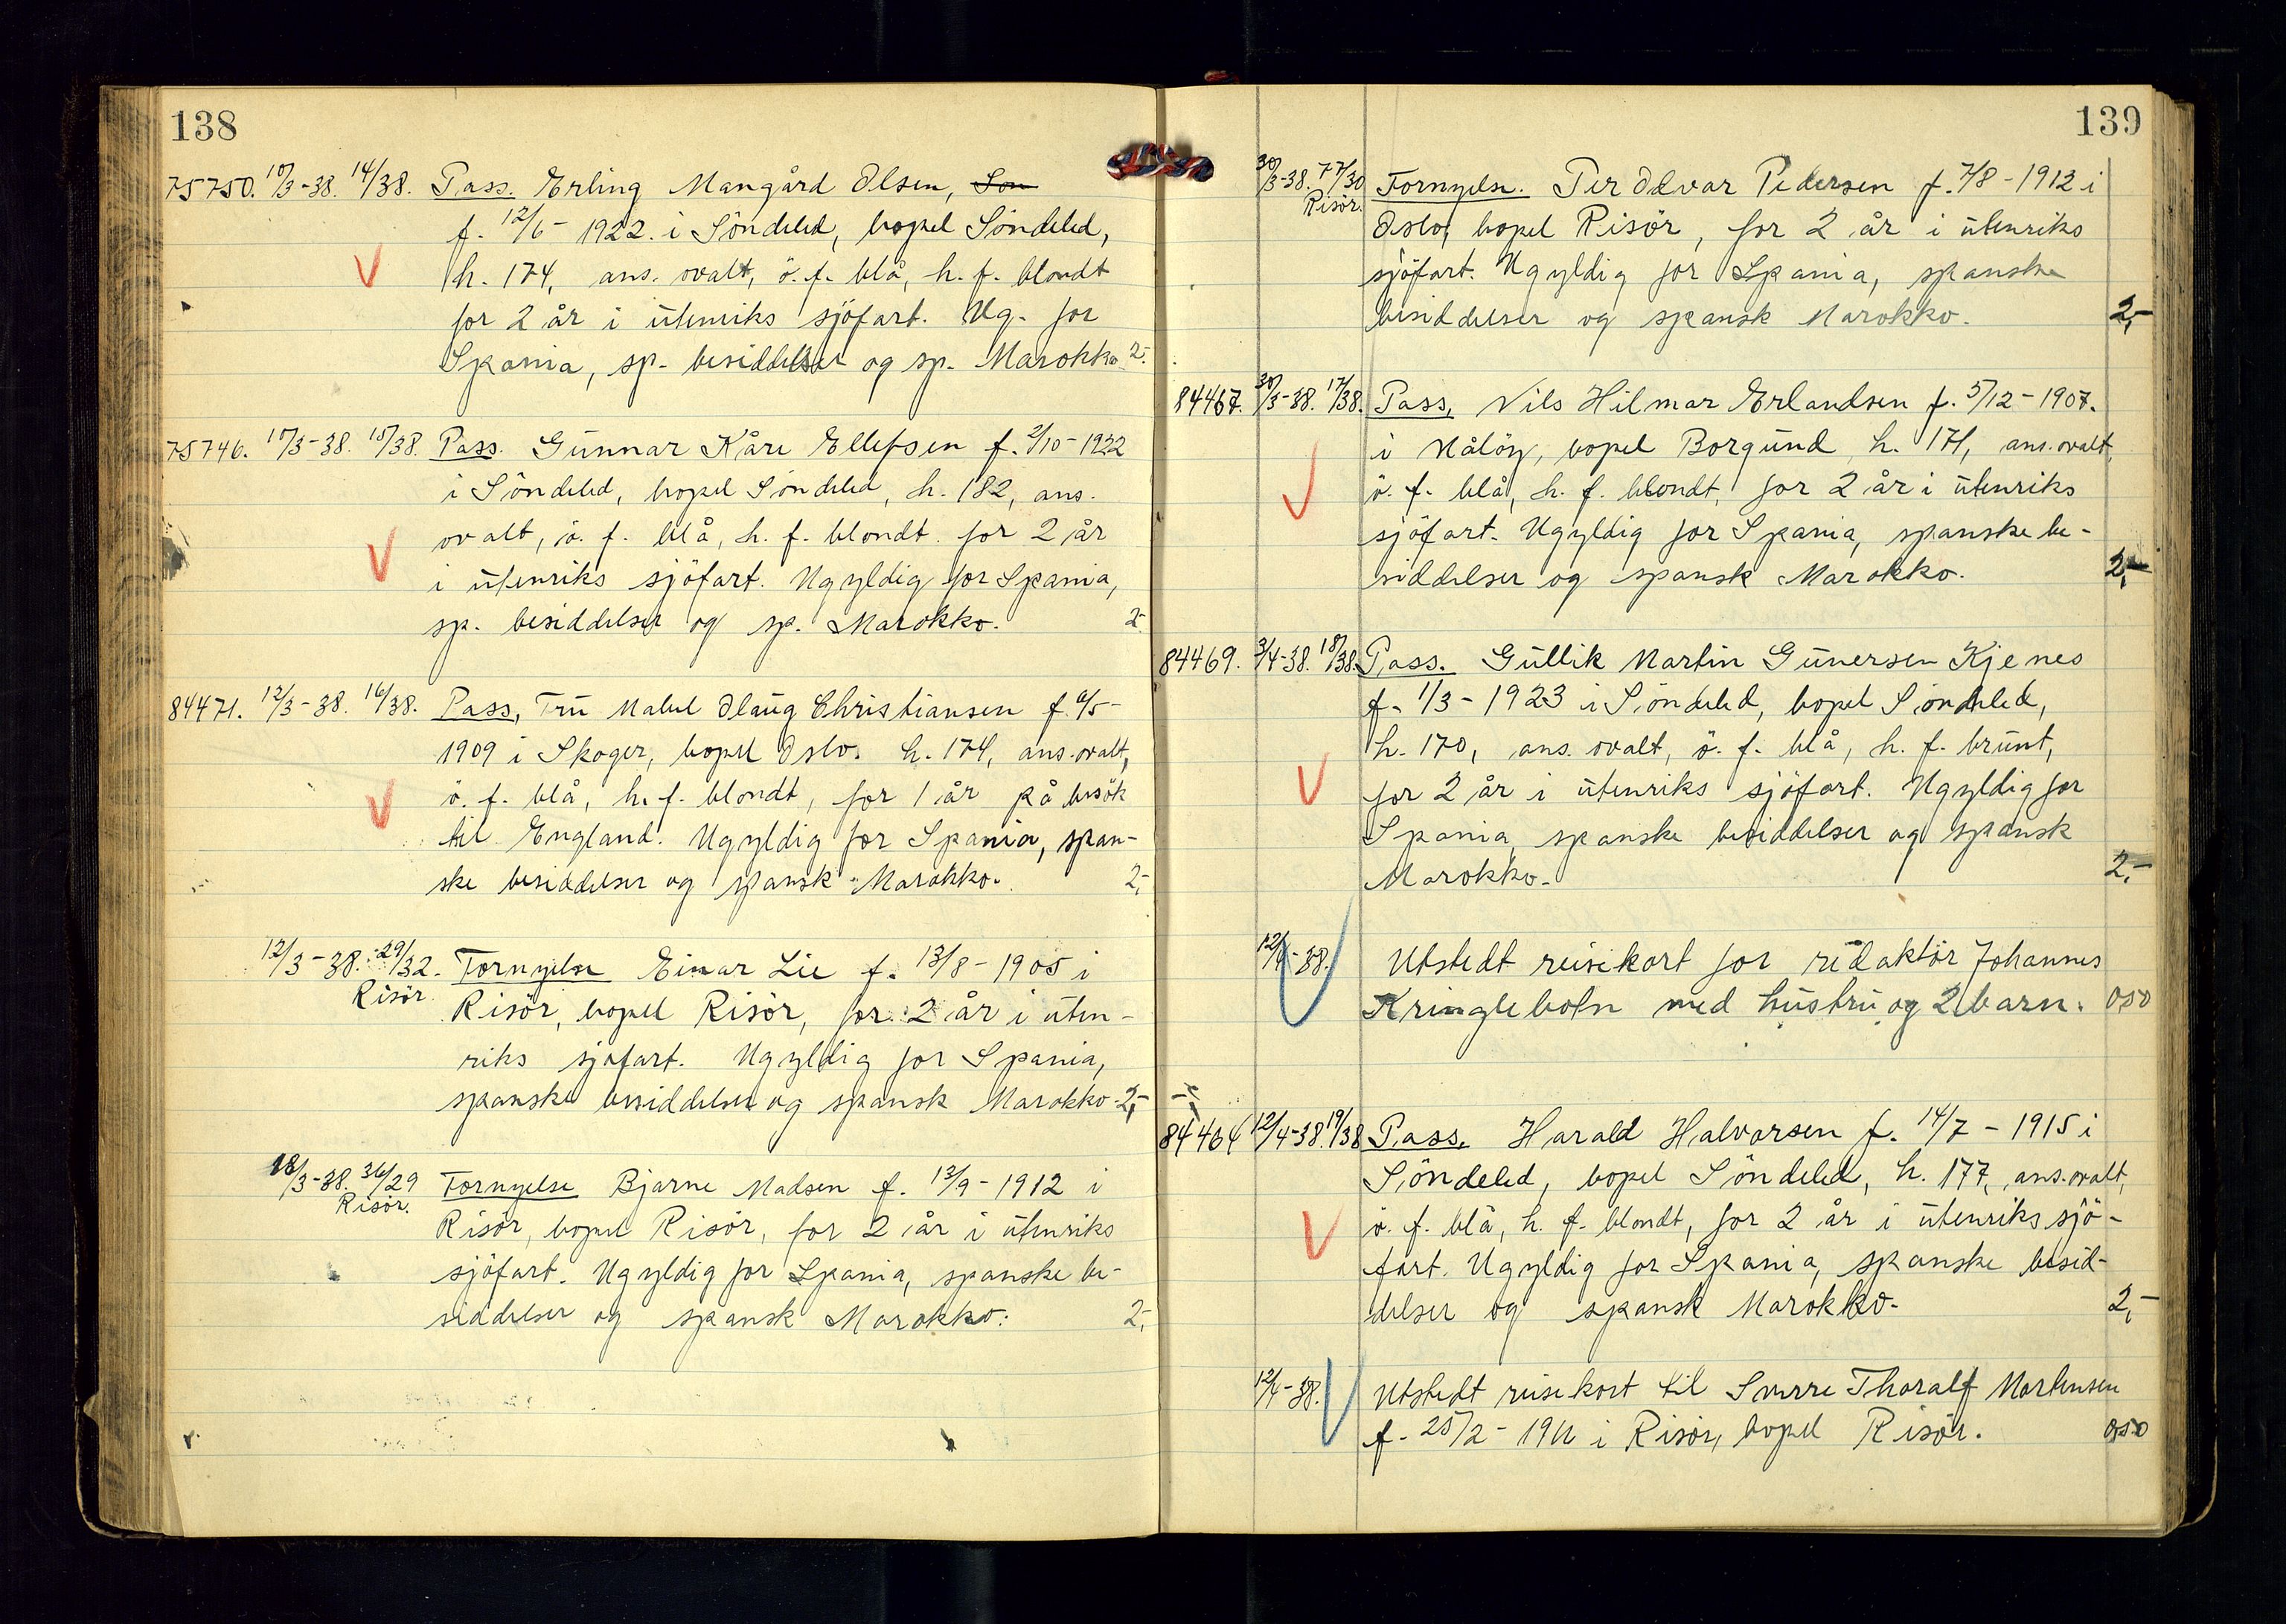 138
75750. 10/3-38. 14/38. Pass. Erling Mangård Olsen, Son
f. 12/6- 1922. i Söndeled, bopel Söndeled,
h. 174, ans. ovalt, ö. f. blå, h. f. blondt
for 2 år i utenriks sjöfart. Ug. for
Spania, sp. besiddelser og sp. Marokko 2-
75746. 11/3-38. 15/38. Pass. Gunnar Kåre Ellefsen f. 2/10-1922
i Söndeled, bopel Söndeled, h. 182, ans.
ovalt, ö. f. blå, h. f. blondt. for 2 år
i utenriks sjöfart. Ugyldig for Spania,
sp. besiddelser og sp. Marokko. 2-
84471. 12/3-38. 16/38. Pass, Fru Mabel Olaug Christiansen f. 6/5-
1909 i Skoger, bopel Oslo. h. 174, ans. ovalt,
ö. f. blå, h. f. blondt, for 1 år på besök
til England. Ugyldig for Spania, span-
ske besiddelser og spansk Marokko. 2,-
12/3-38. 29/32. Fornyelse Einar Lie f. 13/8-1905 i
Risör Risör, bopel Risör, for 2 år i uten-
riks sjöfart. Ugyldig for Spania,
spanske besiddelser og spansk Marokko. 2,-
18/3-38. 36/29 Fornyelse Bjarne Madsen f. 13/9-1912 i
Risör. Risör, bopel Risör, for 2 år i utenriks
sjöfart. Ugyldig for Spania, spanske be-
siddelser og spansk Marokko. 2,-
139
30/3-38. 77/30 Fornyelse. Per Odvar Pedersen f. 7/8-1912 i
Risör. Oslo, bopel Risör, for 2 år i utenriks
sjöfart. Ugyldig for Spania, spanske
besiddelser og spansk Marokko. 2,-
84467. 30/3-38. 17/38. Pass, Nils Hilmar Erlandsen f. 5/12-1907.
i Målöy, bopel Borgund, h. 171, ans. ovalt,
ö. f. blå, h. f. blondt, for 2 år i utenriks
sjöfart. Ugyldig for Spania, spanske be-
siddelser og spansk Marokko. 2,-
84469. 3/4-38. 18/38. Pass. Gullik Martin Gunersen Kjenes
f. 1/3-1923 i Söndeled, bopel Söndeled,
h. 170, ans. ovalt, ö. f. blå, h. f. brunt,
for 2 år i utenriks sjöfart. Ugyldig for
Spania, spanske besiddelser og spansk
Marokko. 2,-
12/4-38. Utstedt reisekort for redaktör Johannes
Kringlebotn med hustru og 2 barn. 050
84464 12/4-38. 19/38 Pass. Harald Halvorsen f. 14/7-1915 i
Söndeled, bopel Söndeled, h. 177, ans. ovalt,
ö. f. blå, h. f. blondt, for 2 år i utenriks sjö-
fart. Ugyldig for Spania, spanske besid-
delser og spansk Marokko. 2,-
12/4-38. Utstedt reisekort til Sverre Thoralf Mortensen
f. 25/2-1911 i Risör, bopel Risör. 050